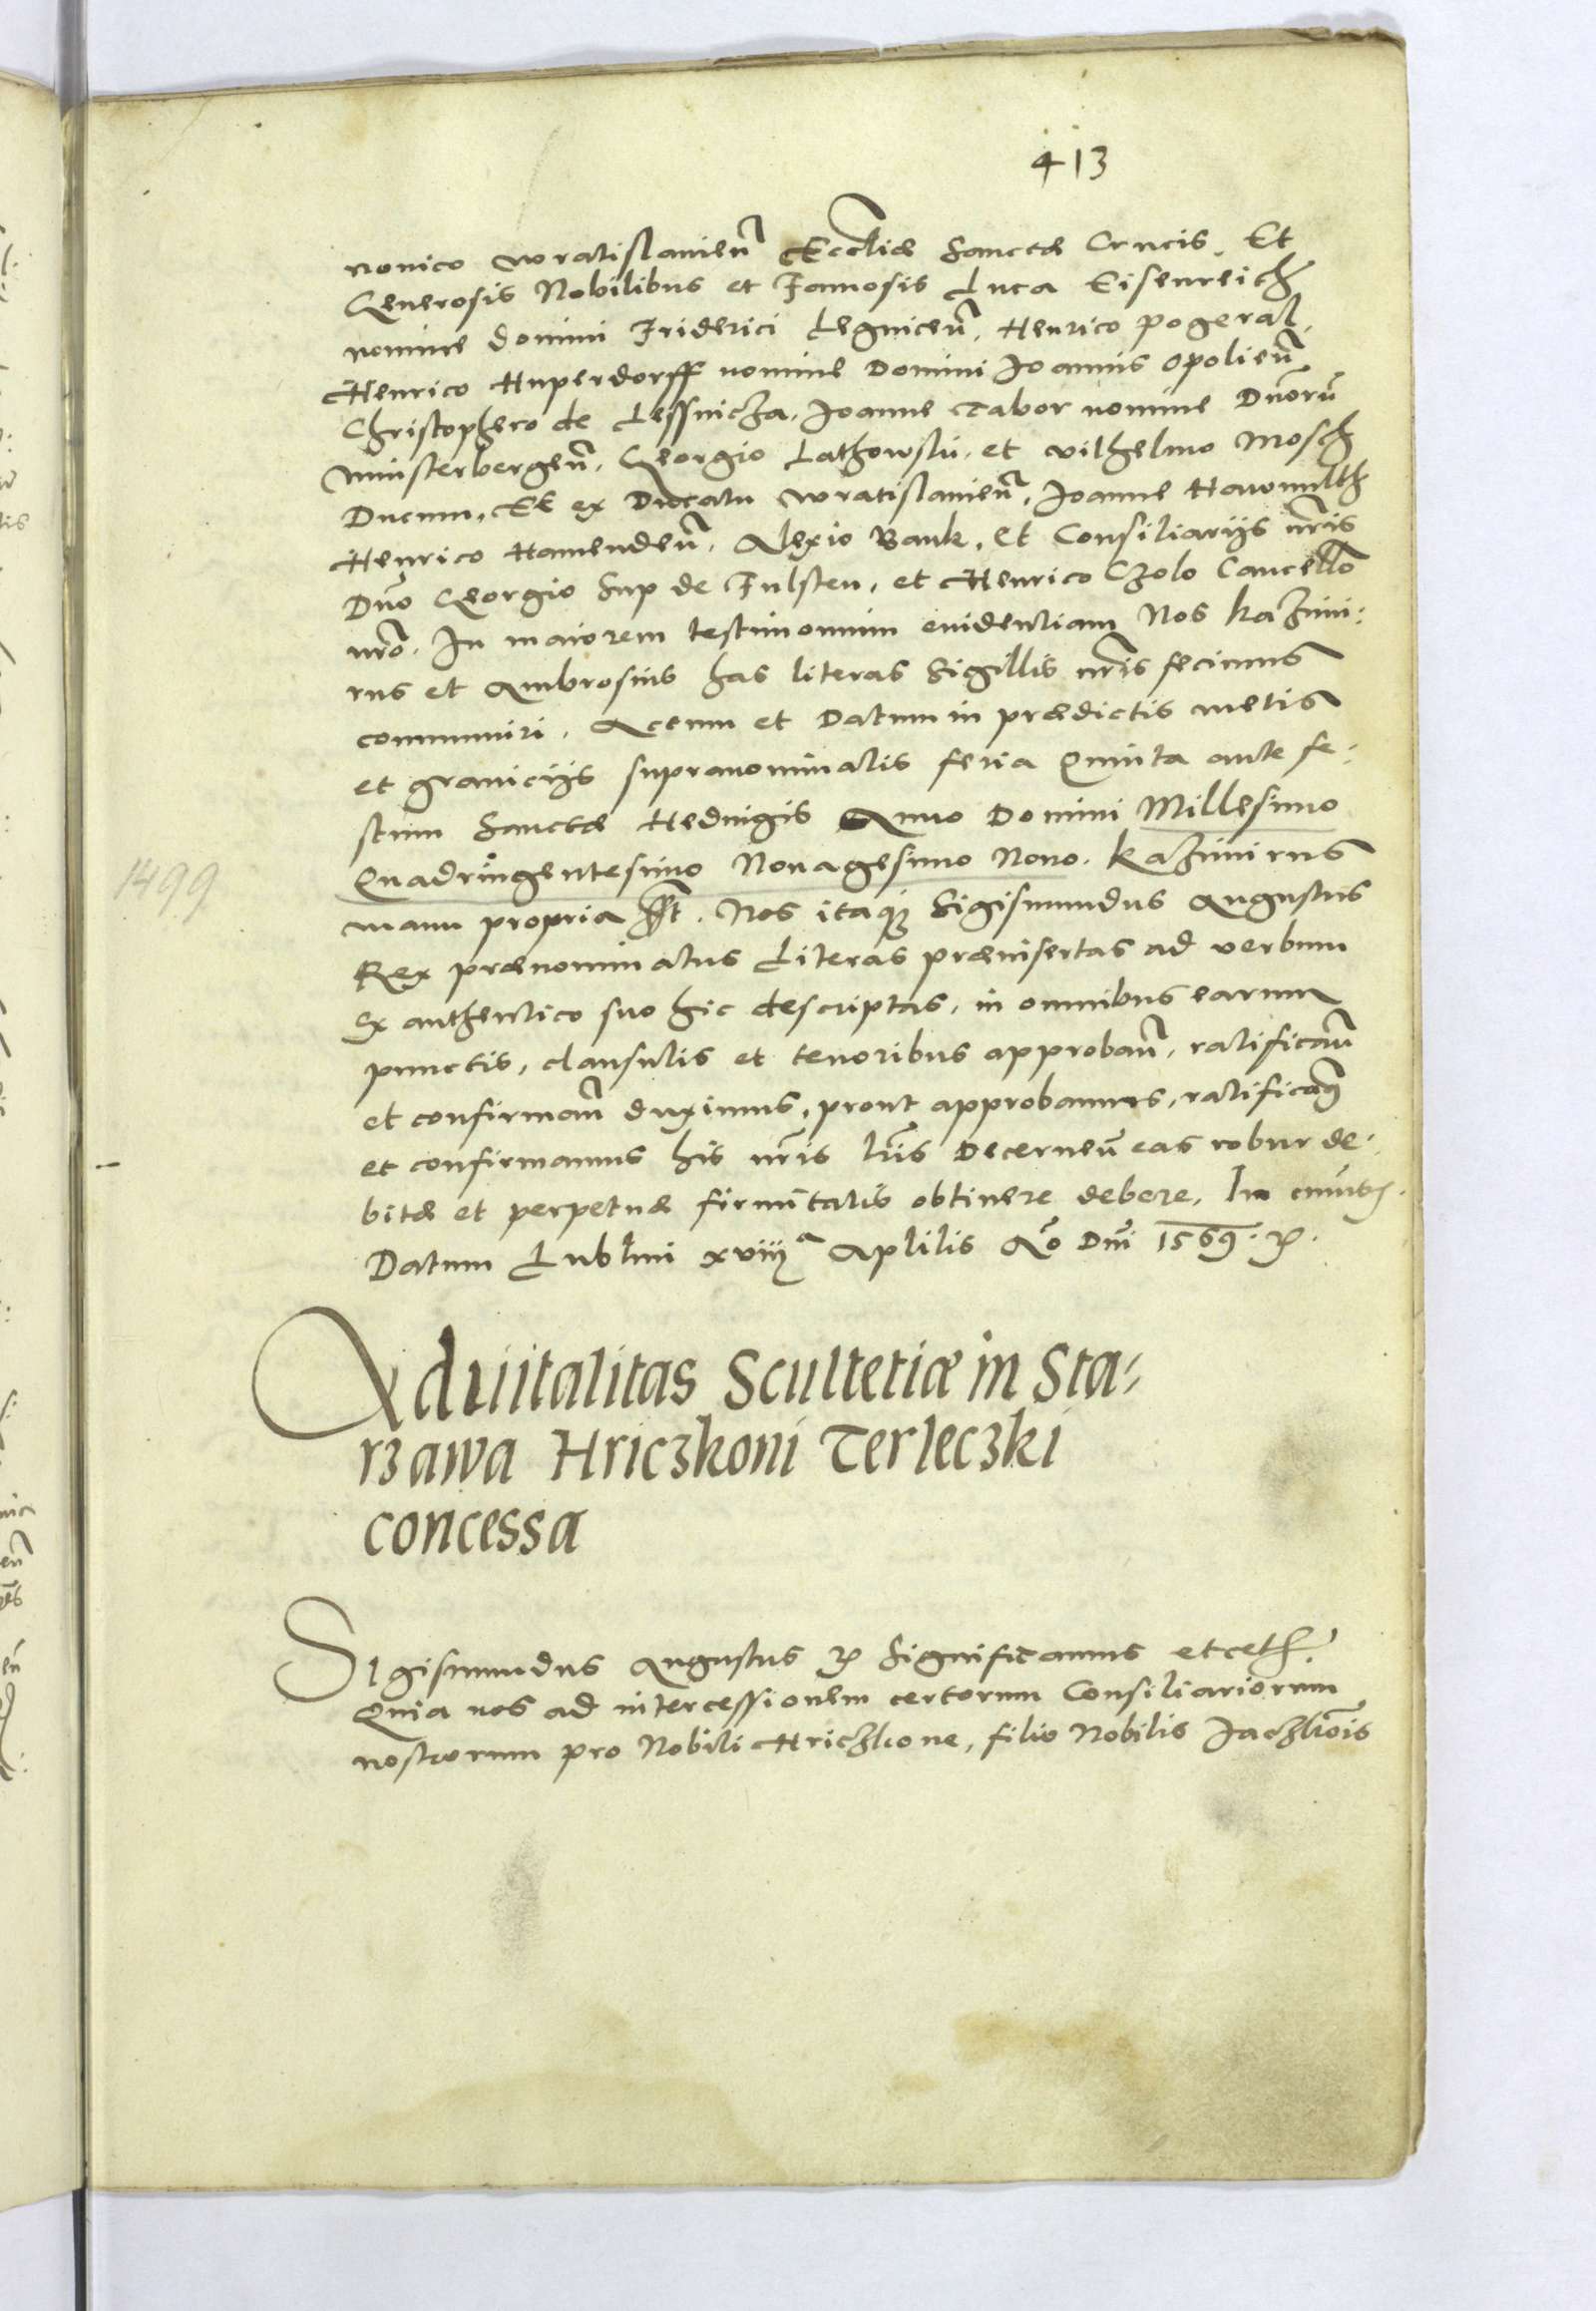 413
nonico wratislavien̄ Eccl̄iæ Sanctæ Crucis. Et
Generosis Nobilibus et Famosis Luca Eisenreich
nomine domini Friderici Legnicen̄, Henrico Pogeral,
Henrico Huperdorff nomine Domini Joannis Opolien̄
Christophero de Lessnicza. Joanne Tabor nomine Dn̄orū
Minsterbergen̄. Georgio Lathowski. et Vilhelmo Mosch
Ducum. Et ex Ducatu wratislavien̄, Joanne Hawnulth
Henrico Hamenden̄. Alexio Bank. Et Consiliarijs nr̄is
Dn̄o Georgio Sup de Fulsten, et Henrico Czolo Cancell̄o
nr̄o. In maiorem testimonium evidentiam Nos kazimi:
rus et Ambrosius has literas Sigillis nr̄is fecimus
communiri. Actum et Datum in prædictis metis
et granicijs supranominatis feria Quinta ante fe:
stum Sanctæ Hedvigis Anno Domini Millesimo
Quadringentesimo Nonagesimo Nono. kazimirus
1499
manu propria. Nos itaq; Sigismundus Augustus
Rex prænominatus Literas præinsertas ad verbum
Ex authentico suo hic descriptas, in omnibus earum
punctis, clausulis et tenoribus approban̄, ratifican̄
et confirman̄ duximus, prout approbamus, ratificam9
et confirmamus his nr̄is lr̄is Decernen̄ eas robur de:
bitæ et perpetuæ firmitatis obtinere debere. In cuius
Datum Lublini xviij a Aplilis A͞o Dn̄i 1569.
Advitalitas Scultetiæ in Sta:
rzawa Hriczkoni Terleczki
concessa
Sigismundus Augustus Significamus etceth
Quia nos ad intercessionem certorum Consiliariorum
nostrorum pro Nobili Hriczkone, filio Nobilis Jaczkōis